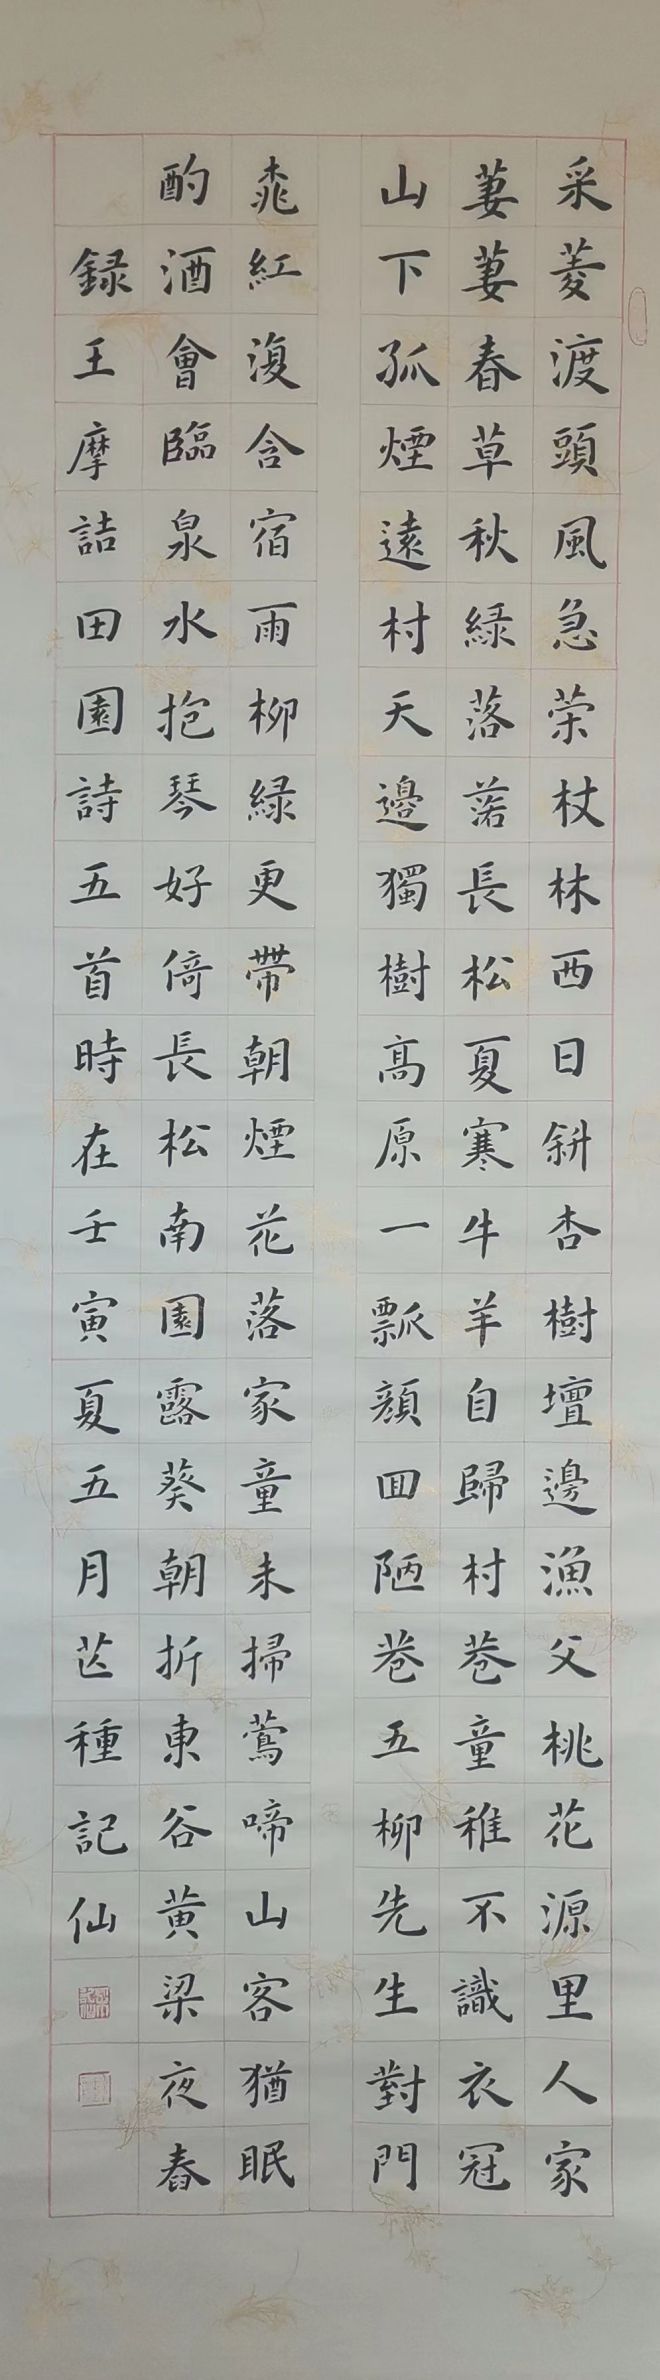 采菱渡頭風急荣杖林西日斜杏樹壇邊漁父桃花源里人家
萋萋春草秋緑落落長松夏寒牛羊自歸村巷童稚不識衣冠
山下孤煙遠村天邊獨樹高原一瓢顔回陋巷五柳先生對門
桃紅復含宿雨柳緑更帶朝煙花落家童未掃鶯啼山客猶眠
酌酒會臨泉水抱琴好倚長松南園露葵朝折東谷黄梁夜舂
録王摩詰田園詩五首時在壬寅夏五月芒種記仙